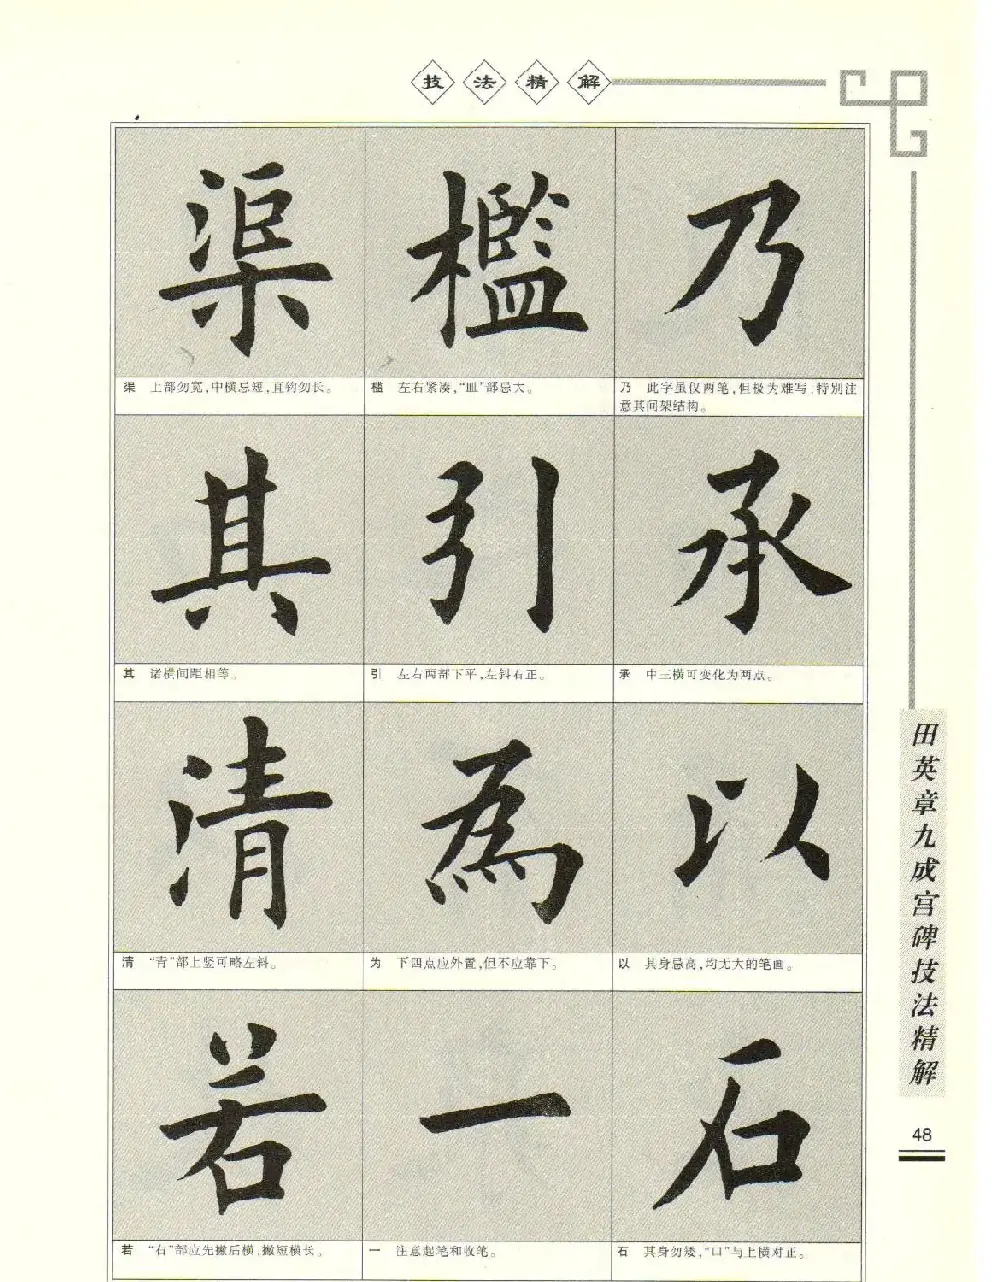 技法精解
渠 檻 乃
渠 上部勿宽,中横忌短,直钩勿长。
槛 左右紧凑,“皿”部忌大。
乃 此字虽仅两笔,但极为难写,特别注
意其间架结构。
其 引 承
其 诸横间距相等。
引 左右两部下平,左斜右正。
承 中三横可变化为两点。
清 為 以
清 “青”部上竖可略左斜。
为 下四点应外置,但不应靠下。
以 其身忌高,均无大的笔画。
若 一 石
若 “右”部应先撇后横,撇短横长。
一 注意起笔和收笔。
石 其身勿矮,“口”与上横对正。
田英章九成宫碑技法精解
48